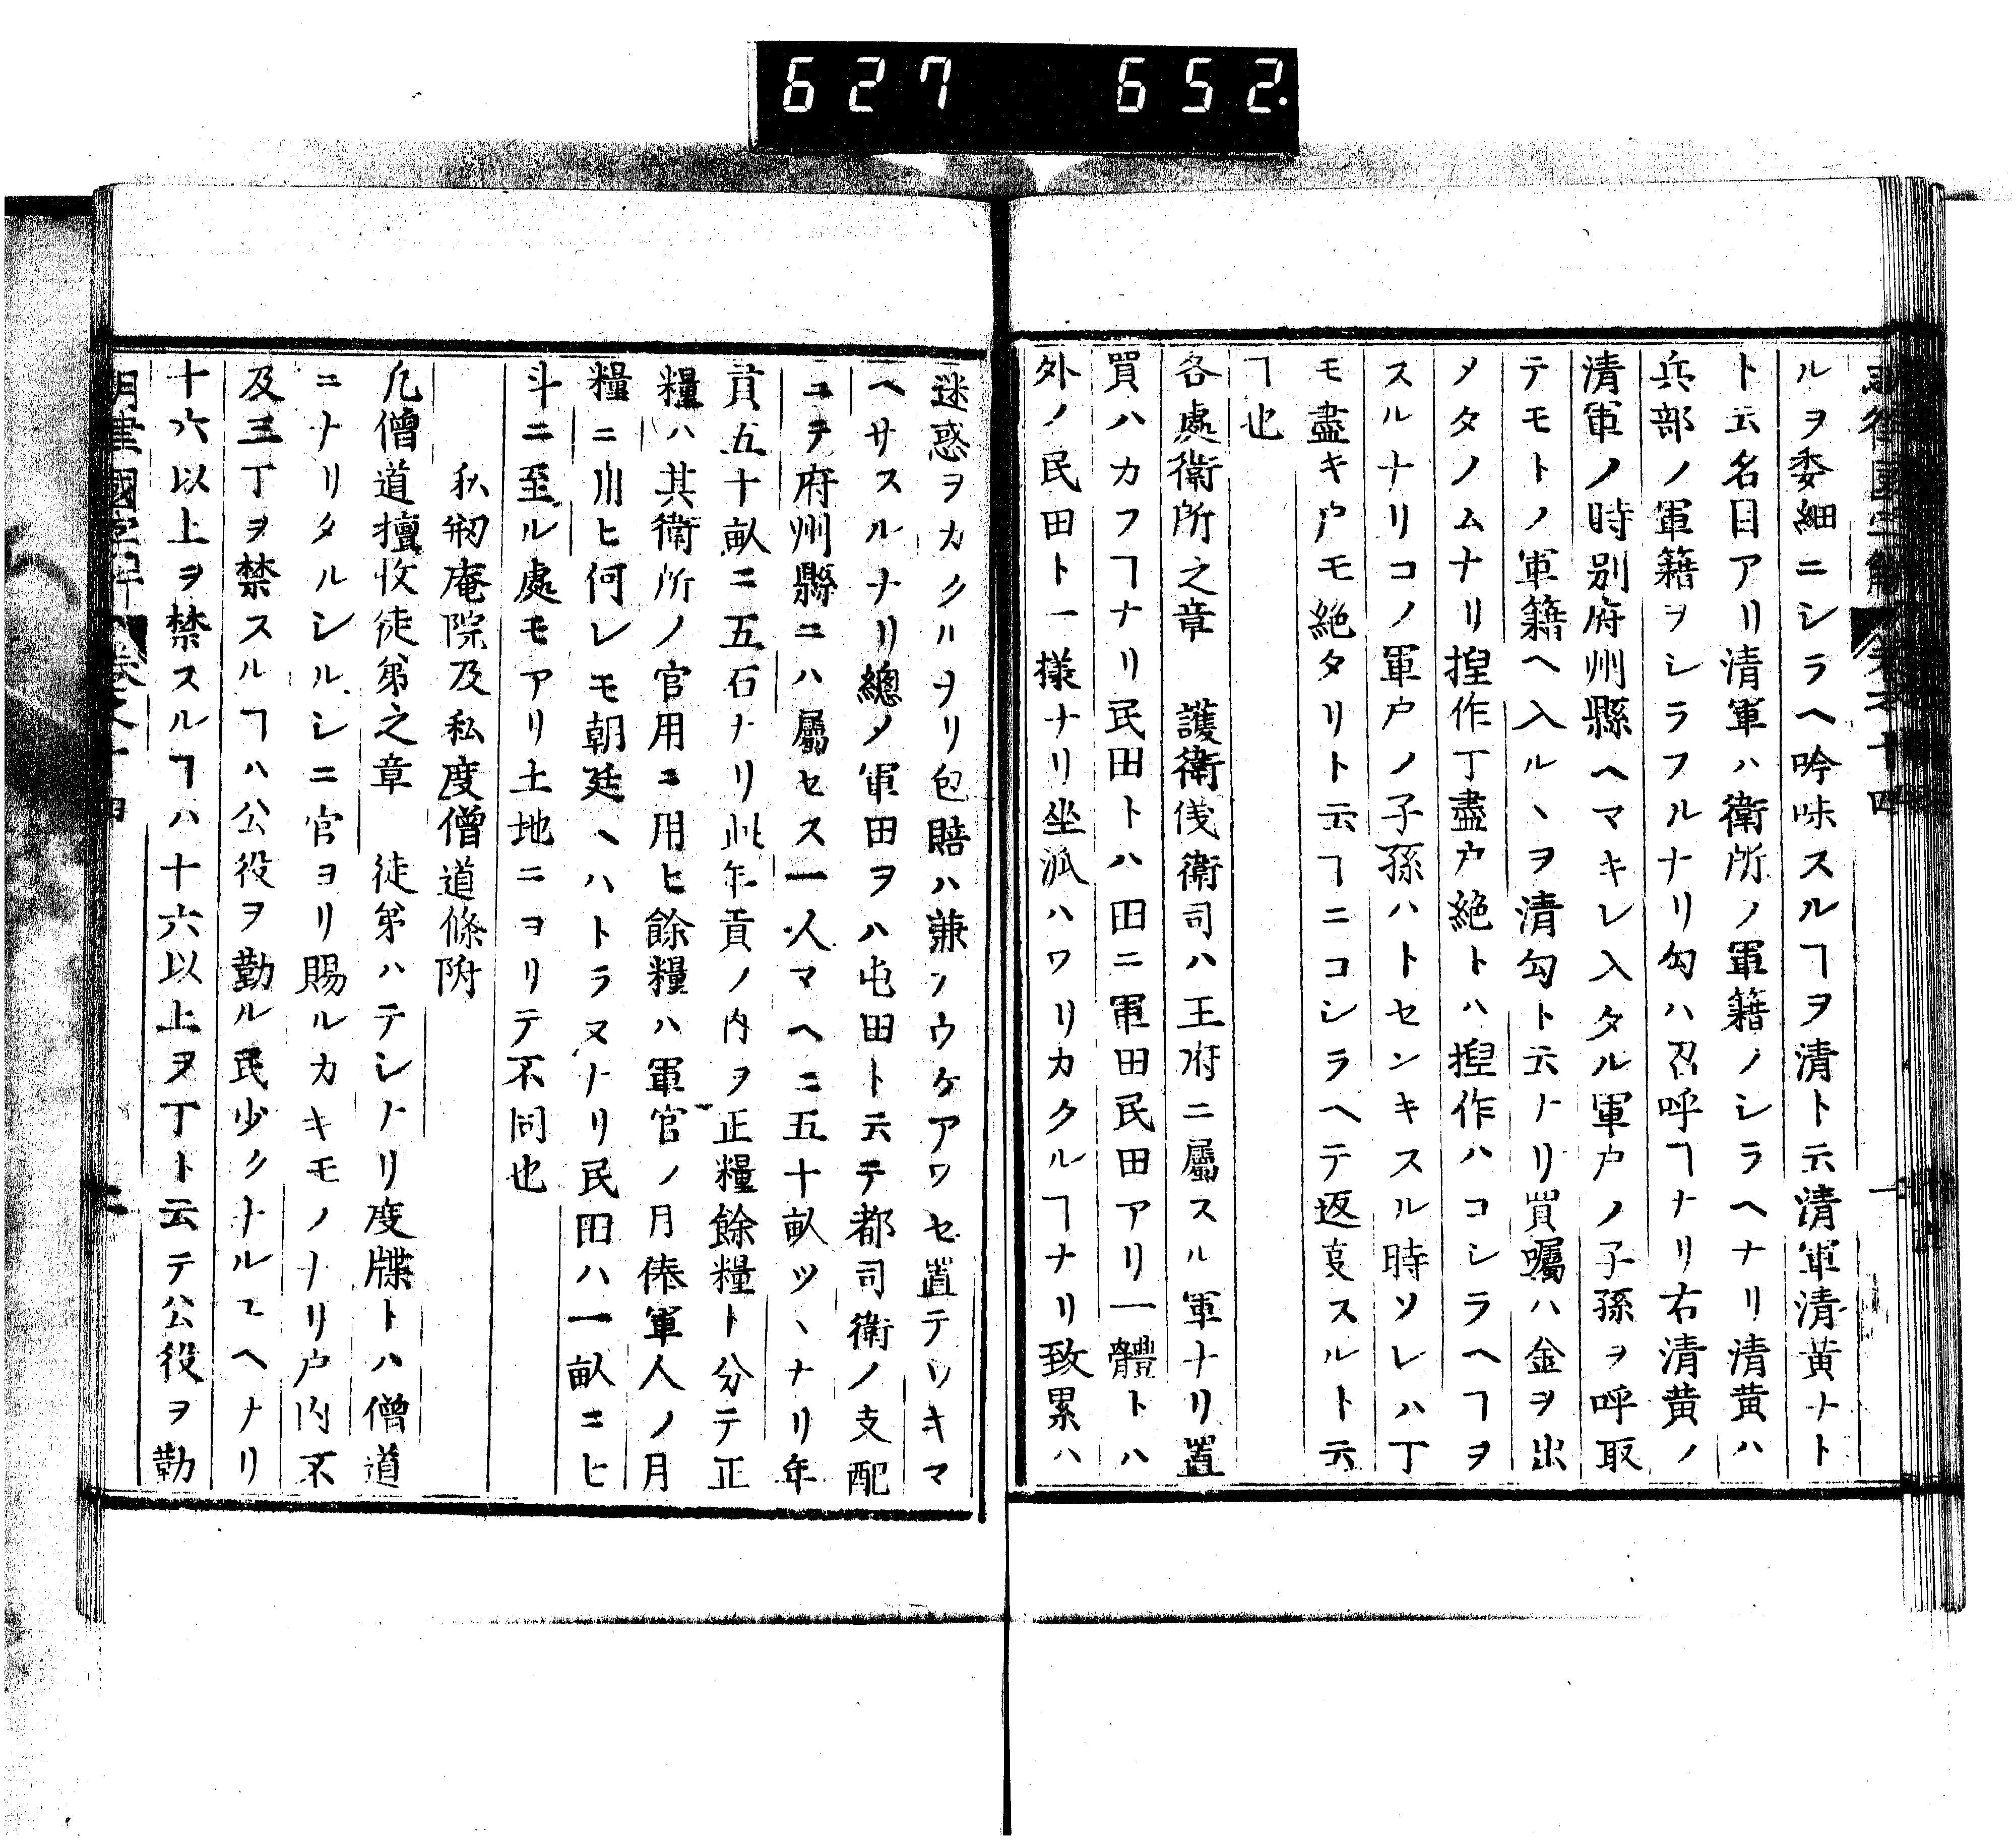 627 652
ルヲ委細ニシラヘ吟味スルヿヲ清ト云清軍清黄ナト
ト云名目アリ清軍ハ衛所ノ軍籍ノシラヘナリ清黄ハ
兵部ノ軍籍ヲシラフルナリ勾ハ召呼ヿナリ右清黄ノ
清軍ノ時別府州縣ヘマキレ入タル軍戸ノ子孫ヲ呼取
テモトノ軍籍ヘ入ルヽヲ清勾ト云ナリ買囑ハ金ヲ出
メタノムナリ揑作丁盡戸絶トハ揑作ハコシラヘヿヲ
スルナリコノ軍戸ノ子孫ハトセンキスル時ソレハ丁
モ盡キ戸モ絶タリト云ヿニコシラヘテ返叓スルト云
ヿ也
各處衛所之章　護衛儀衛司ハ王府ニ屬スル軍ナリ置
買ハカフヿナリ民田トハ田ニ軍田民田アリ一體トハ
外ノ民田ト一樣ナリ坐派ハワリカクルヿナリ致累ハ
迷惑ヲカクルヲリ包賠ハ兼ノウケアワセ置テツキマ
ヘサスルナリ總ノ軍田ヲハ屯田ト云テ都司衛ノ支配
ニテ府州縣ニハ屬セス一人マヘニ五十畝ツヽナリ年
貢五十畝ニ五石ナリ此年貢ノ内ヲ正糧餘糧ト分テ正
糧ハ其衛所ノ官用ニ用ヒ餘糧ハ軍官ノ月俸軍人ノ月
糧ニ用ヒ何レモ朝廷ヘハトラヌナリ民田ハ一畝ニヒ
斗ニ至ル處モアリ土地ニヨリテ不同也
私刱庵院及私度僧道條附
凡僧道擅收徒弟之章　徒弟ハテシナリ度牒トハ僧道
ニナリタルシルシニ官ヨリ賜ルカキモノナリ戸内不
及三丁ヲ禁スルヿハ公役ヲ勤ル民少クナルユヘナリ
十六以上ヲ禁スルヿハ十六以上ヲ丁ト云テ公役ヲ勤